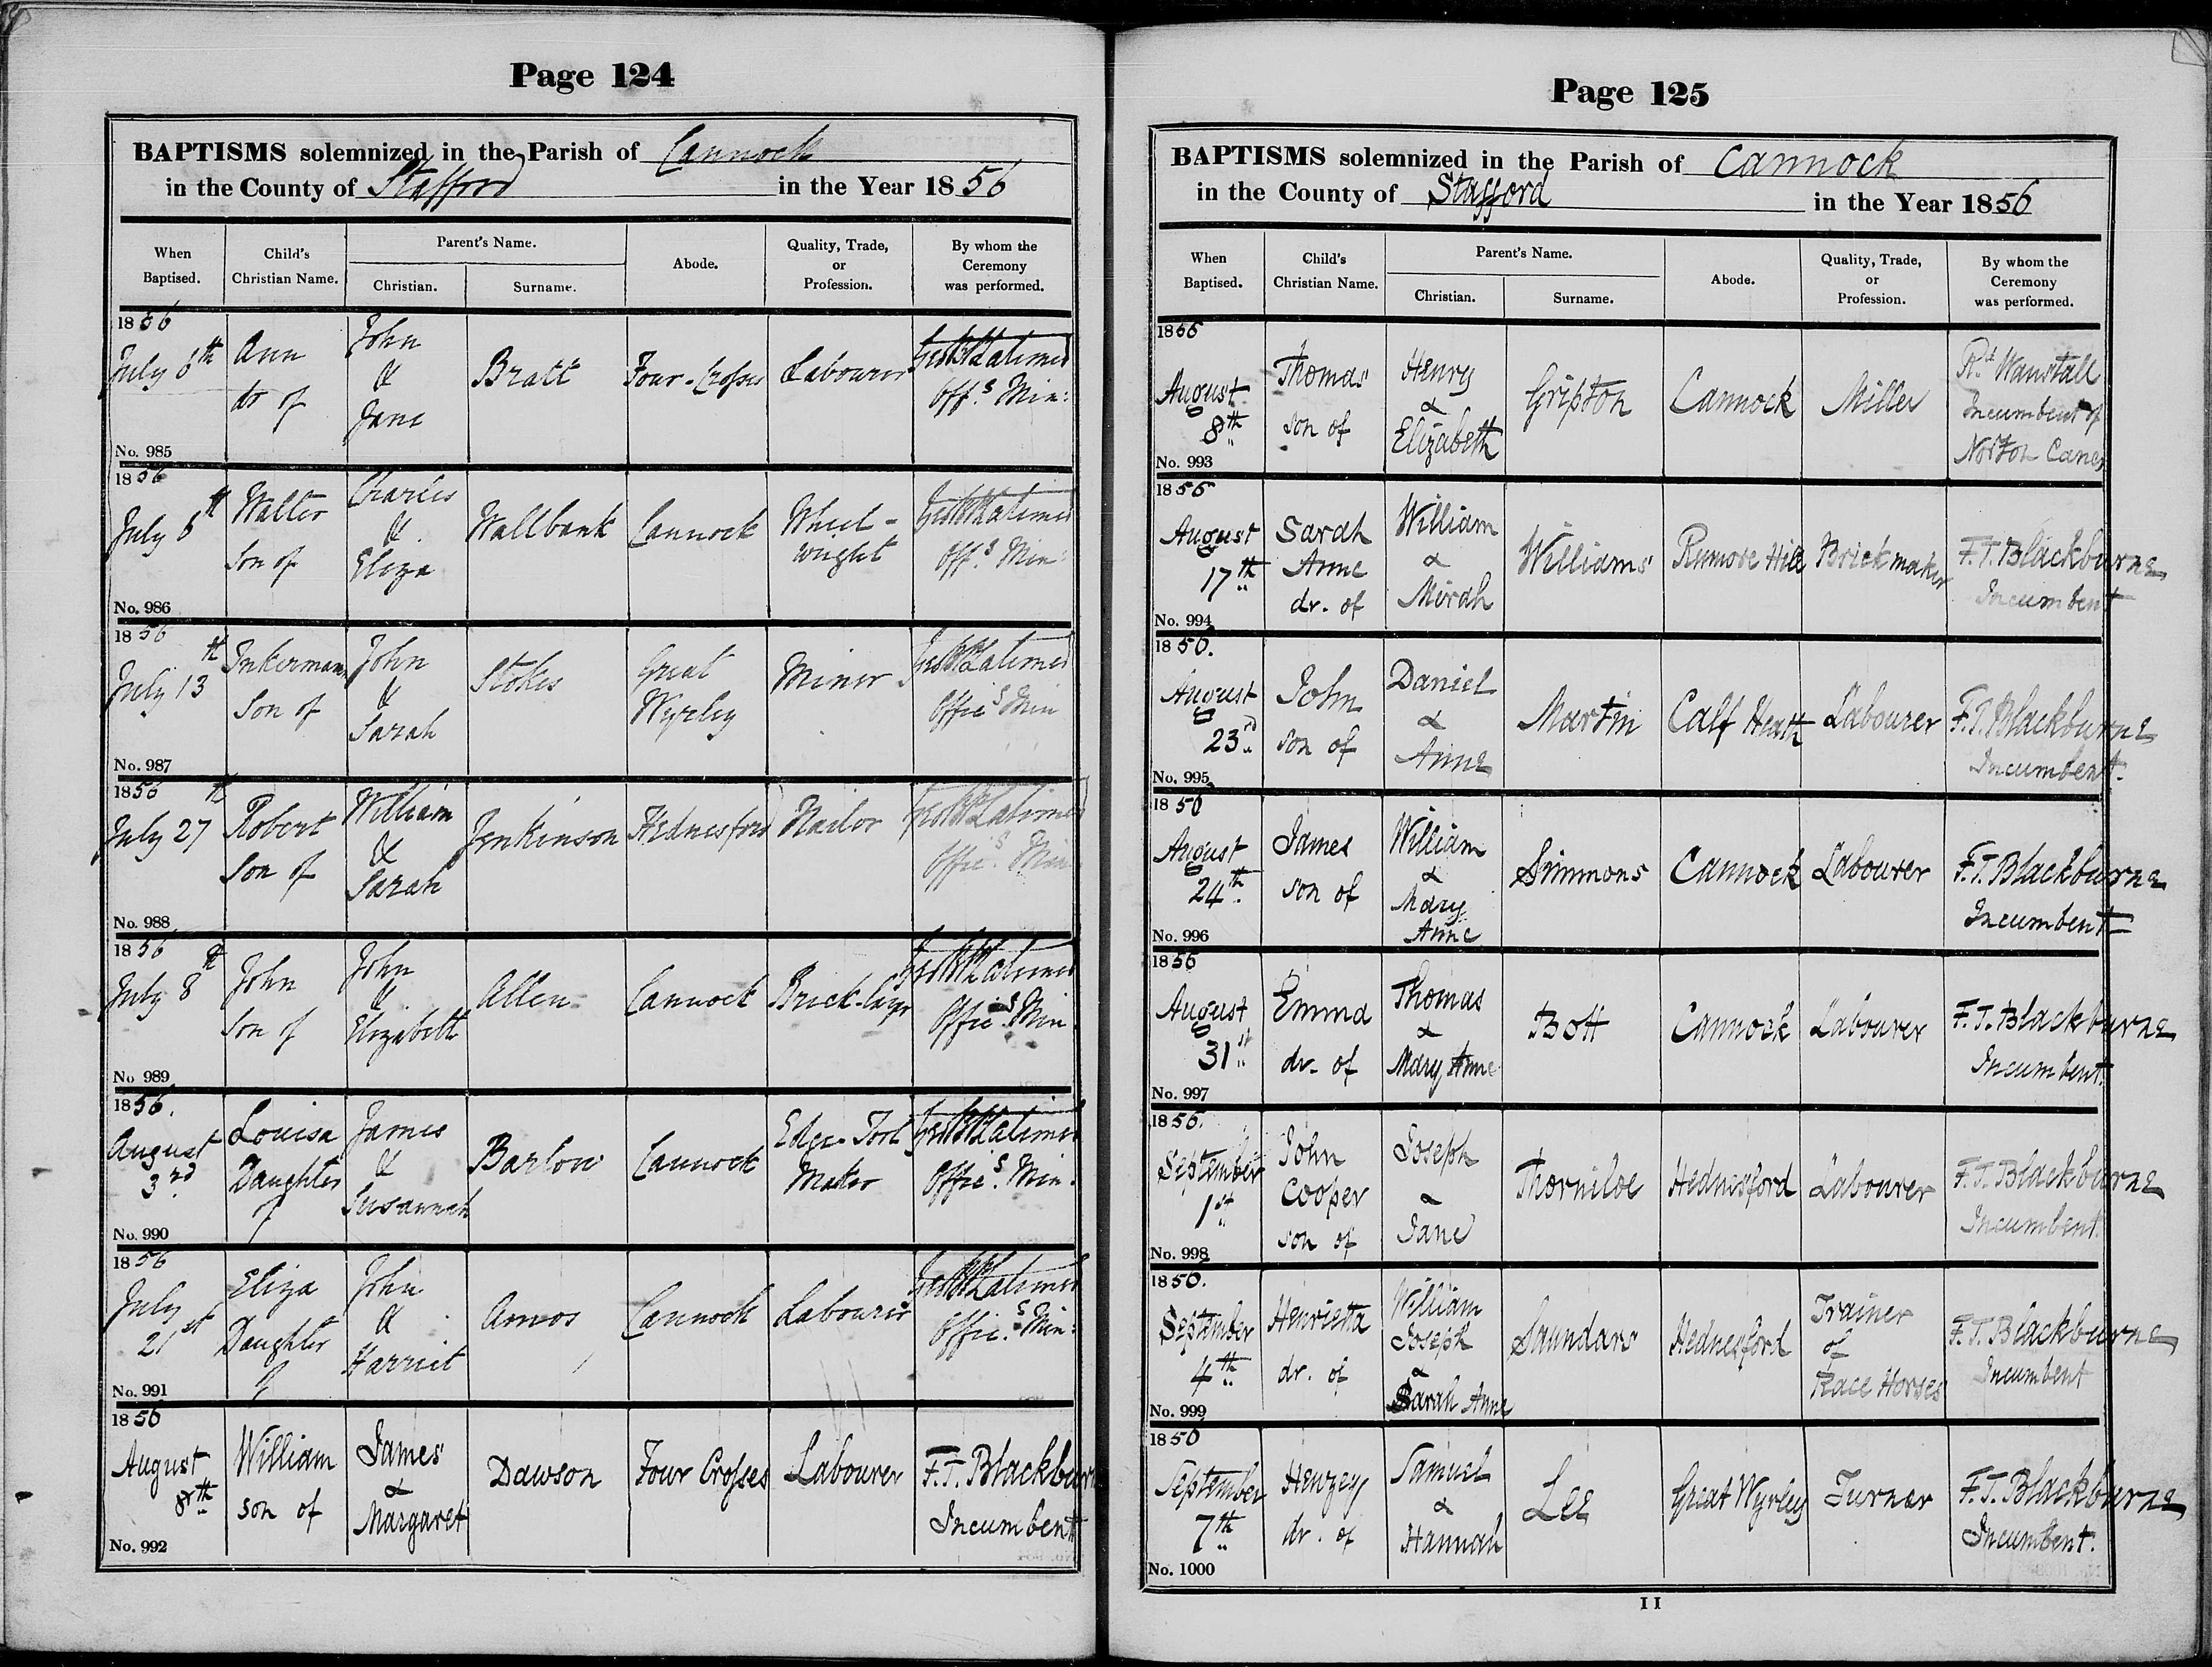 Page 124
BAPTISMS solemnized in the Parish of Cannock
in the County of Stafford in the Year 1856
When Baptised.
Child's Christian Name.
Parent's Name.
Christian.
Surname.
Abode.
Quality, Trade, or Profession.
By whom the Ceremony was performed.
1856
July 6th
No. 985
Ann
dr of
John
&
Jane
Bratt
Four-Crosses
Labourer
Latimer
Offs. Min:
1856
July 6th
No. 986
Walter
Son of
Charles
&
Eliza
Wallbank
Cannock
Wheel-
wright
Latimer
Offs. Min:
1856
July 13th
No. 987
Inkerman
Son of
John
&
Sarah
Stokes
Great
Wyrley
Miner
Latimer
Offics Min
1856
July 27th
No. 988
Robert
Son of
William
&
Sarah
Jenkinson
Hednesford
Nailor
Latimer
Offics. Min
1856
July 8th
No 989
John
Son of
John
&
Elizabeth
Allen
Cannock
Brick-layr
Latimer
Offics. Min
1856.
August
3rd
No. 990
Louisa
Daughter
of
James
&
Susannah
Barlow
Cannock
Edge-Tool
Maker
Latimer
Offics. Min:
1856
July
21st
No. 991
Eliza
Daughter
of
John
&
Harriet
Amos
Cannock
Labourer
Latimer
Offics. Min:
1856
August
8th
No. 992
William
son of
James
&
Margaret
Dawson
Four Crosses
Labourer
F.T. Blackburn
Incumbent
Page 125
BAPTISMS solemnized in the Parish of Cannock
in the County of Stafford in the Year 1856
When Baptised.
Child's Christian Name.
Parent's Name.
Christian.
Surname.
Abode.
Quality, Trade, or Profession.
By whom the Ceremony was performed.
1856
August
8th
No. 993
Thomas
son of
Henry
&
Elizabeth
Gripton
Cannock
Miller
Rd. Wanstall
Incumbent of
Norton Canes
1856
August
17th
No. 994
Sarah
Anne
dr. of
William
&
Mirah
Williams
Rumore Hill
Brickmaker
F.T. Blackburne
Incumbent
1856.
August
23rd
No. 995
John
son of
Daniel
&
Anne
Martin
Calf Heath
Labourer
F.T. Blackburne
Incumbent.
1856
August
24th
No. 996
James
son of
William
&
Mary
Anne
Simmons
Cannock
Labourer
F.T. Blackburne
Incumbent
1856
August
31st
No. 997
Emma
dr. of
Thomas
&
Mary Anne
Bott
Cannock
Labourer
F.T. Blackburne
Incumbent.
1856.
September
1st
No. 998
John
Cooper
son of
Joseph
&
Jane
Thorniloe
Hednesford
Labourer
F.T. Blackburne
Incumbent.
1856.
September
4th
No. 999
Henrietta
dr. of
William
Joseph
&
Sarah Anne
Saundars
Hednesford
Trainer
of
Race Horses
F.T. Blackburne
Incumbent
1856
September
7th
No. 1000
Henzey
dr. of
Samuel
&
Hannah
Lee
Great Wyrley
Turner
F.T. Blackburne
Incumbent.
11